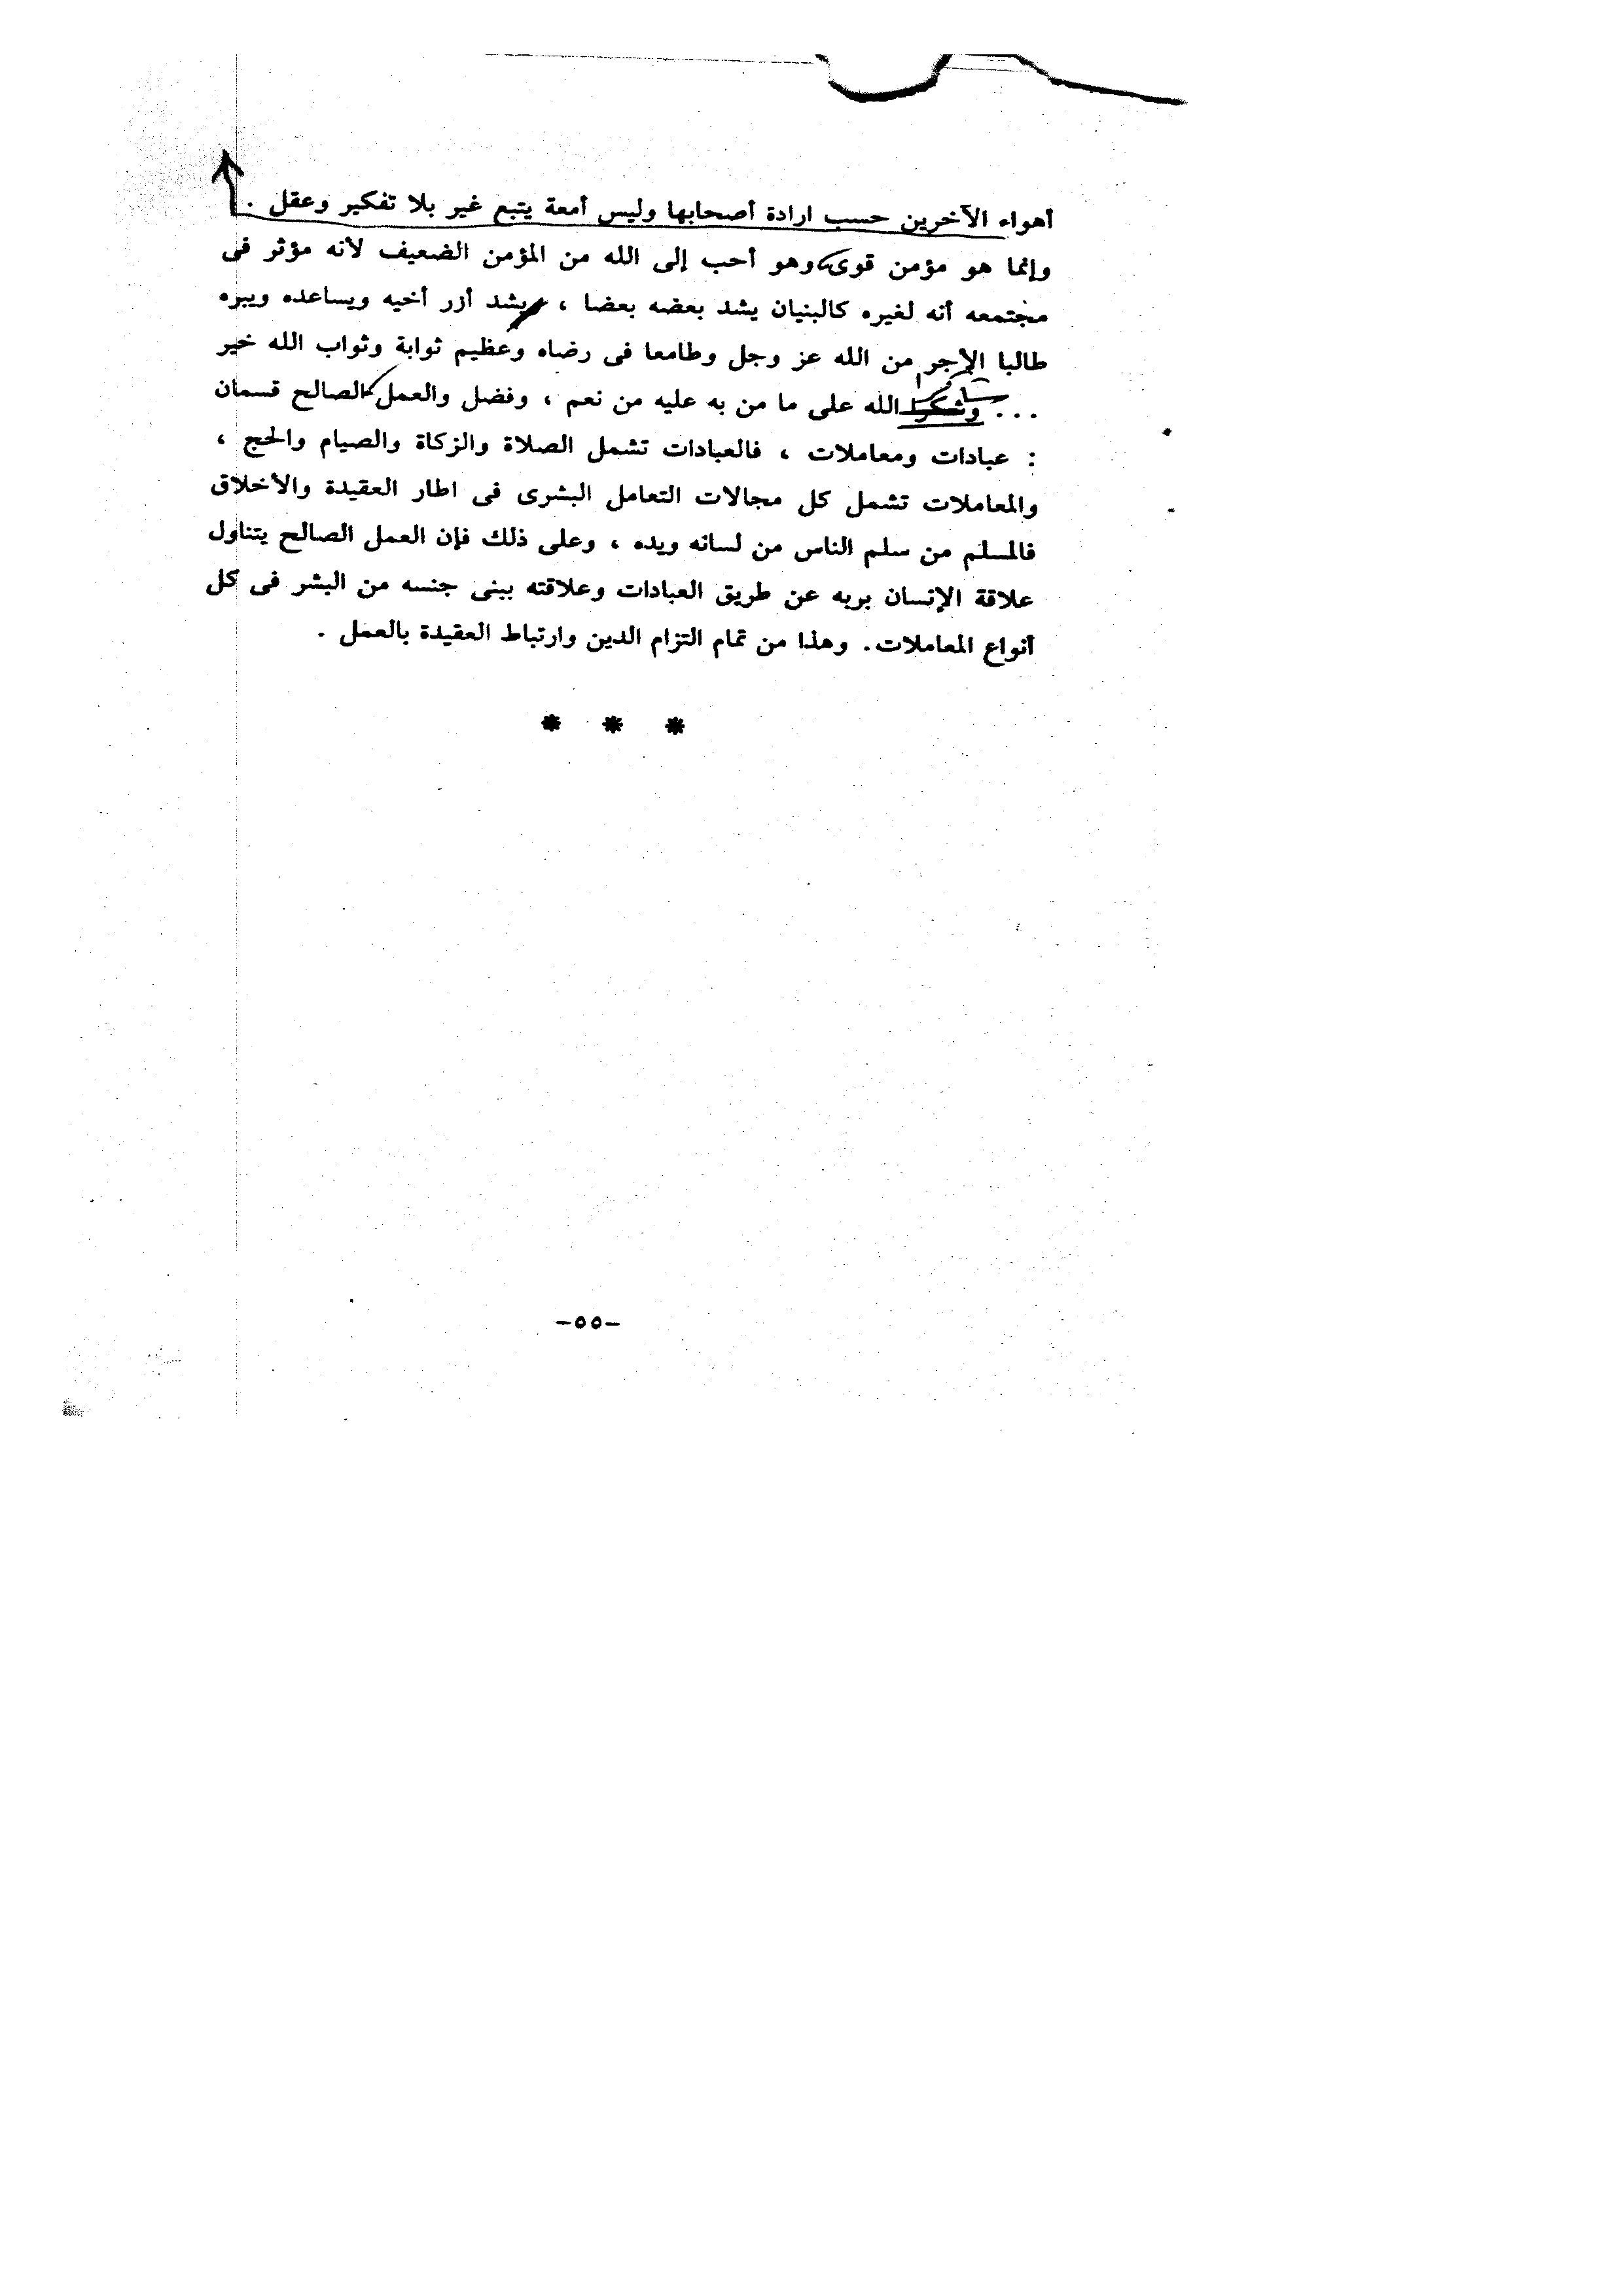 أهواء الآخرين حسب ارادة أصحابها وليس أمعة يتبع غير بلا تفكير وعقل .
وإنما هو مؤمن قوى وهو أحب إلى الله من المؤمن الضعيف لأنه مؤثر فى
مجتمعه أنه لغيره كالبنيان يشد بعضه بعضا ، يشد أزر أخيه ويساعده ويبره
طالبا الأجر من الله عز وجل وطامعا فى رضاه وعظيم ثوابة وثواب الله خير
. . . وشكرا الله على ما من به عليه من نعم ، وفضل والعمل الصالح قسمان
: عبادات ومعاملات ، فالعبادات تشمل الصلاة والزكاة والصيام والحج ،
والمعاملات تشمل كل مجالات التعامل البشرى فى اطار العقيدة والأخلاق
فالمسلم من سلم الناس من لسانه ويده ، وعلى ذلك فإن العمل الصالح يتناول
علاقة الإنسان بربه عن طريق العبادات وعلاقته ببنى جنسه من البشر فى كل
أنواع المعاملات. وهذا من تمام التزام الدين وارتباط العقيدة بالعمل .
* * *
-٥٥-